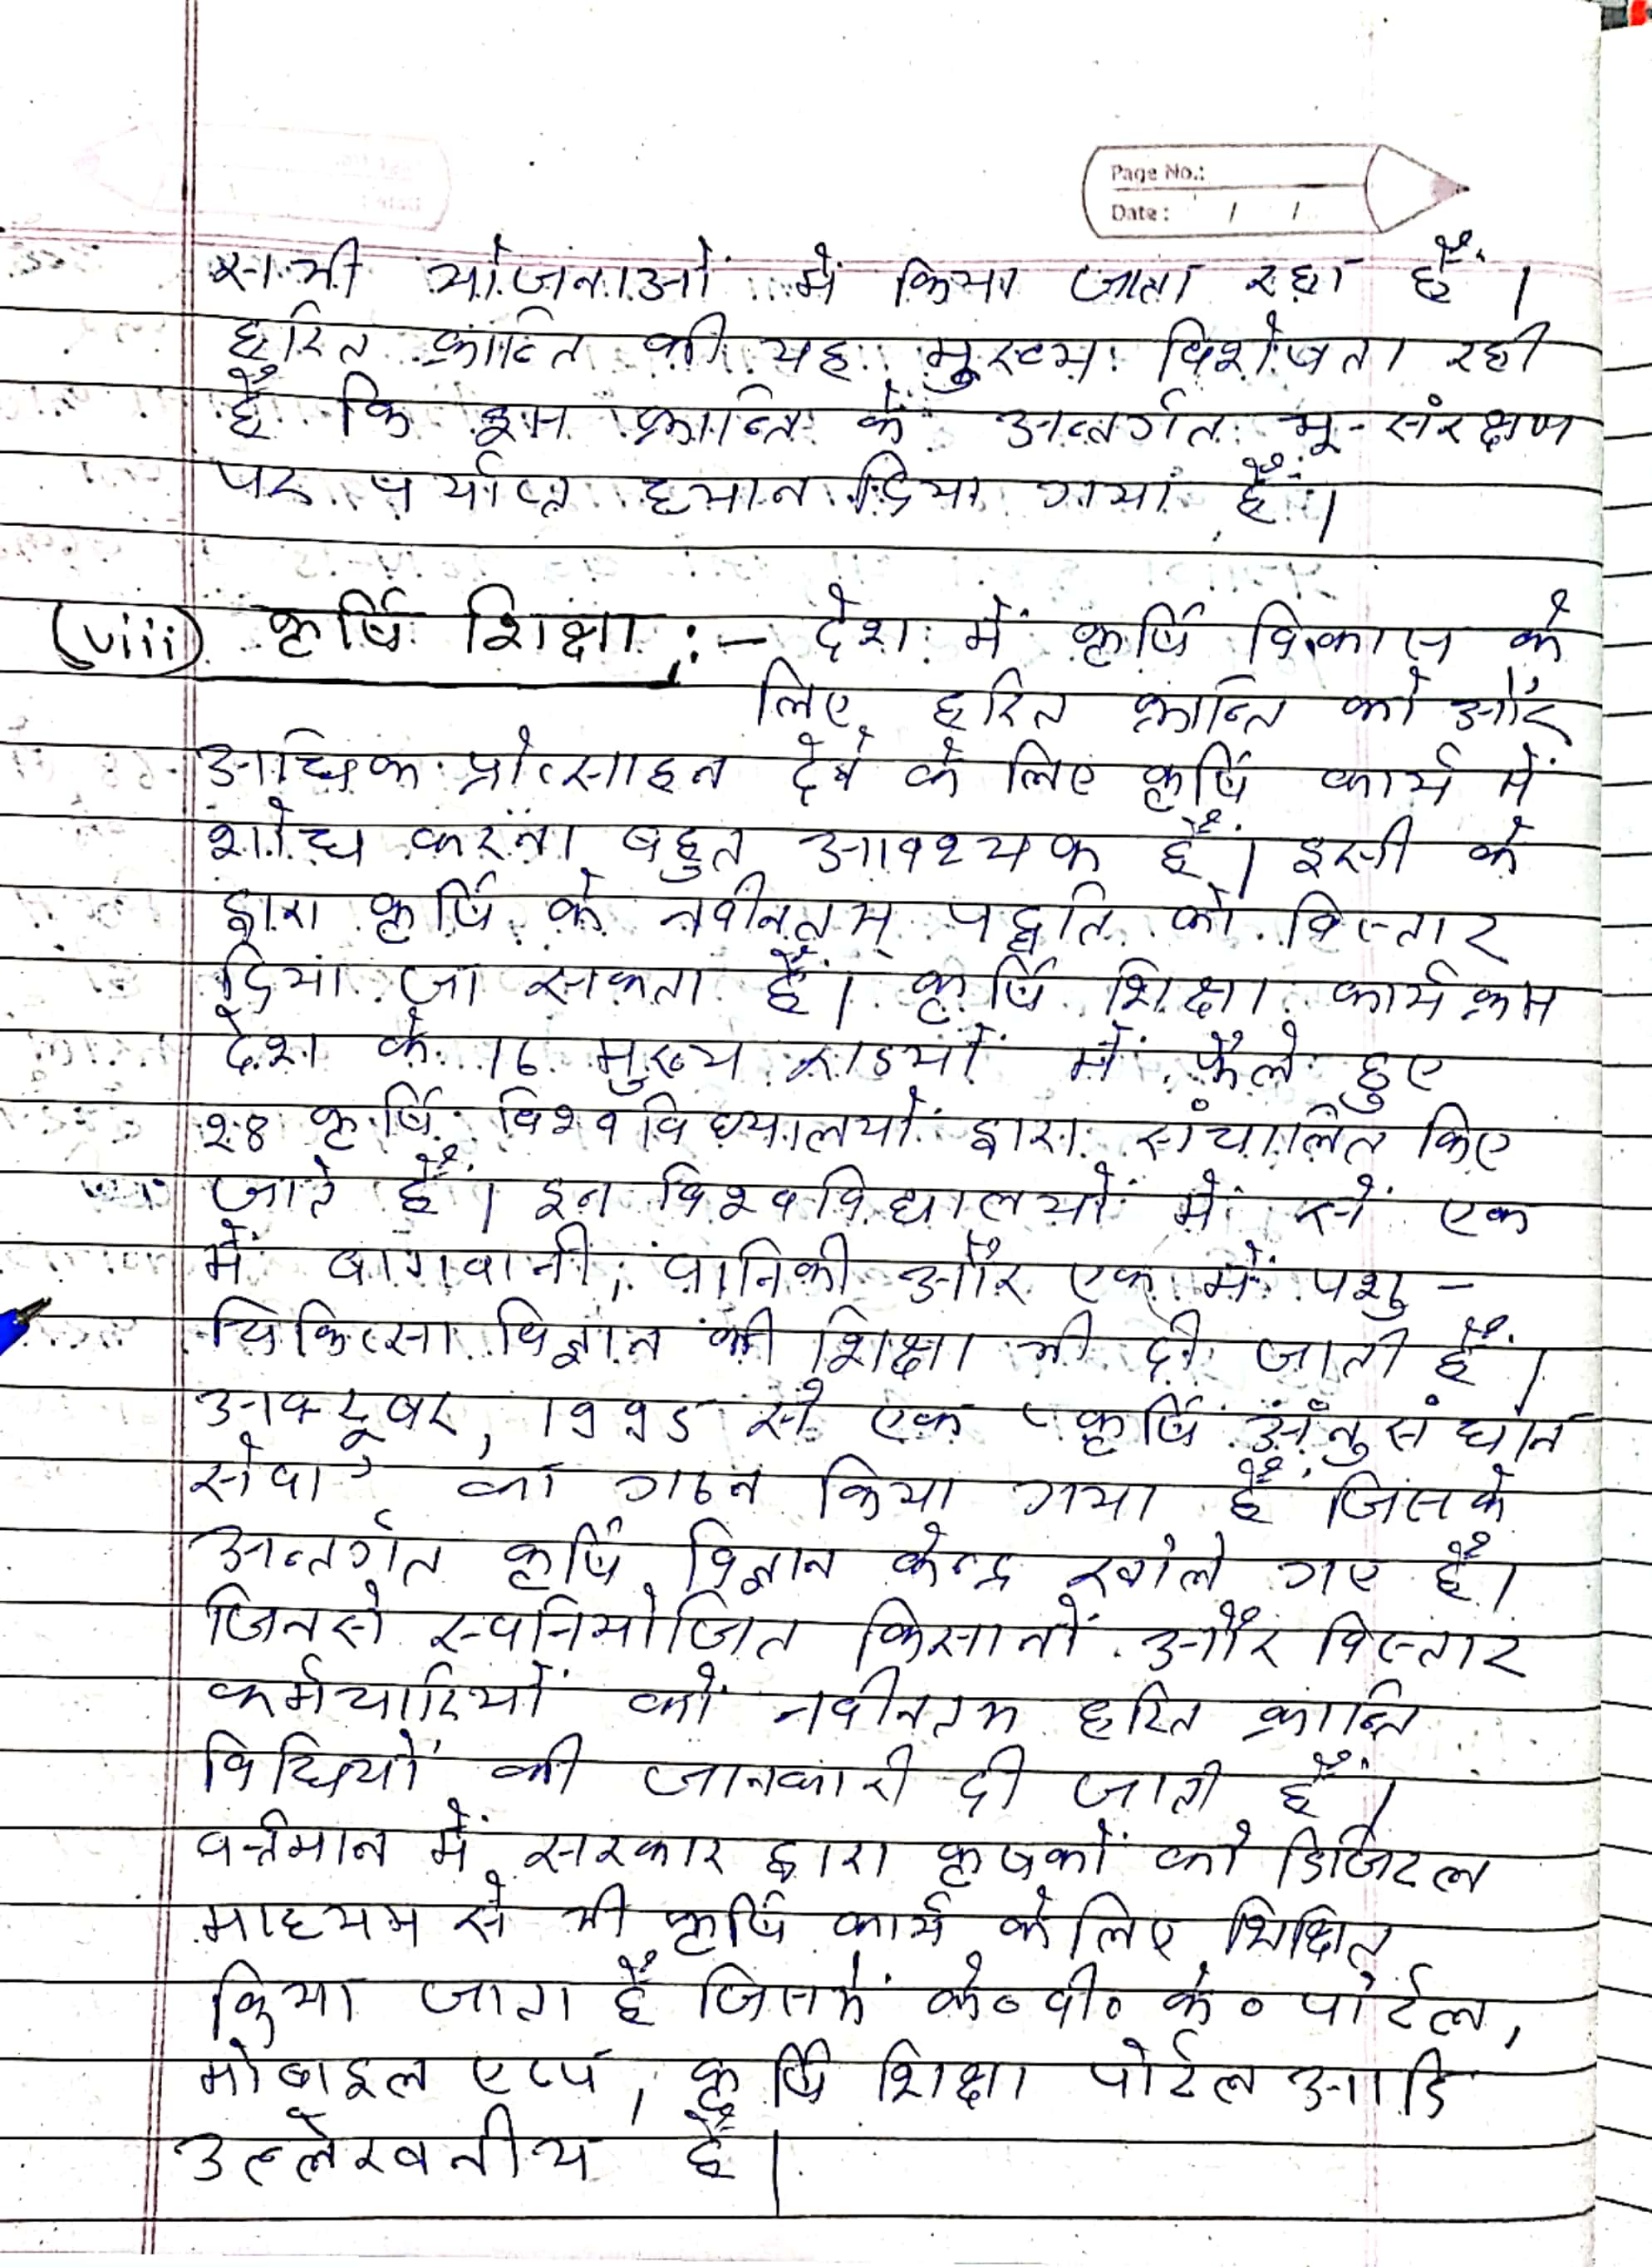 Page No.:
Date: / /
सभी योजनाओं में किया जाता रहा हैं।
हरित क्रान्ति की यह मुख्य विशेषता रही
हैं कि इस क्रान्ति के अन्तर्गत भू-संरक्षण
पर पर्याप्त ध्यान दिया गया हैं।
(viii) कृर्षि शिक्षा :- देश में कृर्षि विकास के
लिए हरित क्रान्ति को और
अधिक प्रोत्साहन देने के लिए कृर्षि कार्य में
शोध करना बहुत आवश्यक हैं। इसी के
द्वारा कृर्षि के नवीनतम् पद्धति को विस्तार
दिया जा सकता हैं। कृर्षि शिक्षा कार्यक्रम
देश के 16 मुख्य राज्यों में फैले हुए
28 कृर्षि विश्वविद्यालयों द्वारा संचालित किए
जाते हैं। इन विश्वविद्यालयों में से एक
में बागवानी, वानिकी और एक में पशु-
चिकित्सा विज्ञान की शिक्षा भी दी जाती हैं।
अक्टूबर, 1975 से एक ‘कृर्षि अनुसंधान
सेवा’ का गठन किया गया हैं जिसके
अन्तर्गत कृर्षि विज्ञान केन्द्र खोले गए हैं।
जिनसे स्वनियोजित किसानों और विस्तार
कर्मचारियों को नवीनतम हरित क्रान्ति
विधियों की जानकारी दी जाती हैं।
वर्तमान में सरकार द्वारा कृषकों को डिजिटल
माध्यम से भी कृर्षि कार्य के लिए शिक्षित
किया जाता हैं जिसमें के० वी० के० पोर्टल,
मोबाइल एप्प, कृर्षि शिक्षा पोर्टल आदि
उल्लेखनीय हैं।